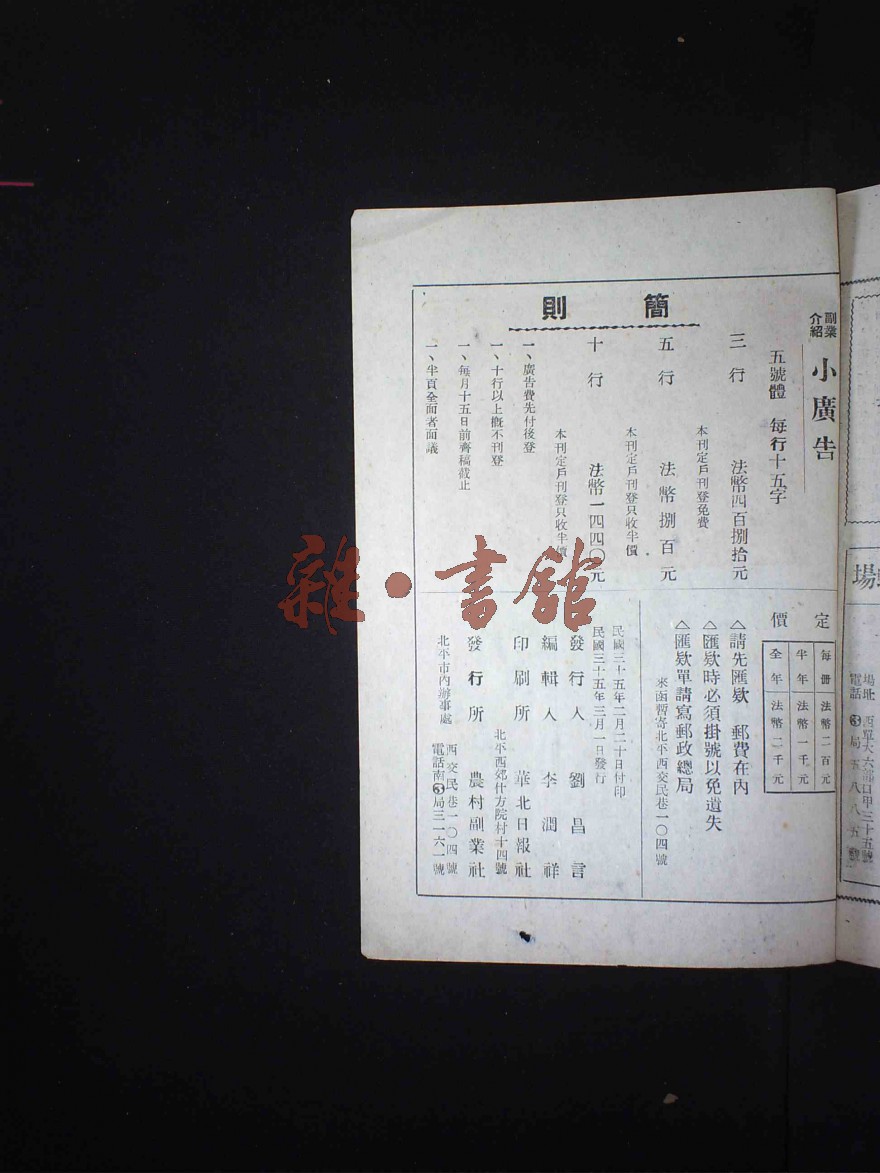 副業
介紹
小廣告
簡則
五號體　每行十五字
三行　法幣四百捌拾元
本刊定戶刊登免費
五行　法幣捌百元
本刊定戶刊登只收半價
十行　法幣一四四〇元
本刊定戶刊登只收半價
一、廣告費先付後登
一、十行以上概不刊登
一、每月十五日前齊稿截止
一、半頁全面者面議
定價
每冊法幣二百元
半年法幣一千元
全年法幣二千元
△請先匯欵　郵費在內
△匯欵時必須掛號以免遺失
△匯欵單請寫郵政總局
來函暫寄北平西交民巷一〇四號
民國三十五年二月二十日付印
民國三十五年三月一日發行
發行人　劉昌言
編輯人　李潤祥
印刷所　華北日報社
北平西郊什方院村十四號
發行所　農村副業社
北平市內辦事處　西交民巷一〇四號
電話南③局三一六一號
場
場址　西單大六部口甲三十五號
電話③局五八八五號
雜·書館